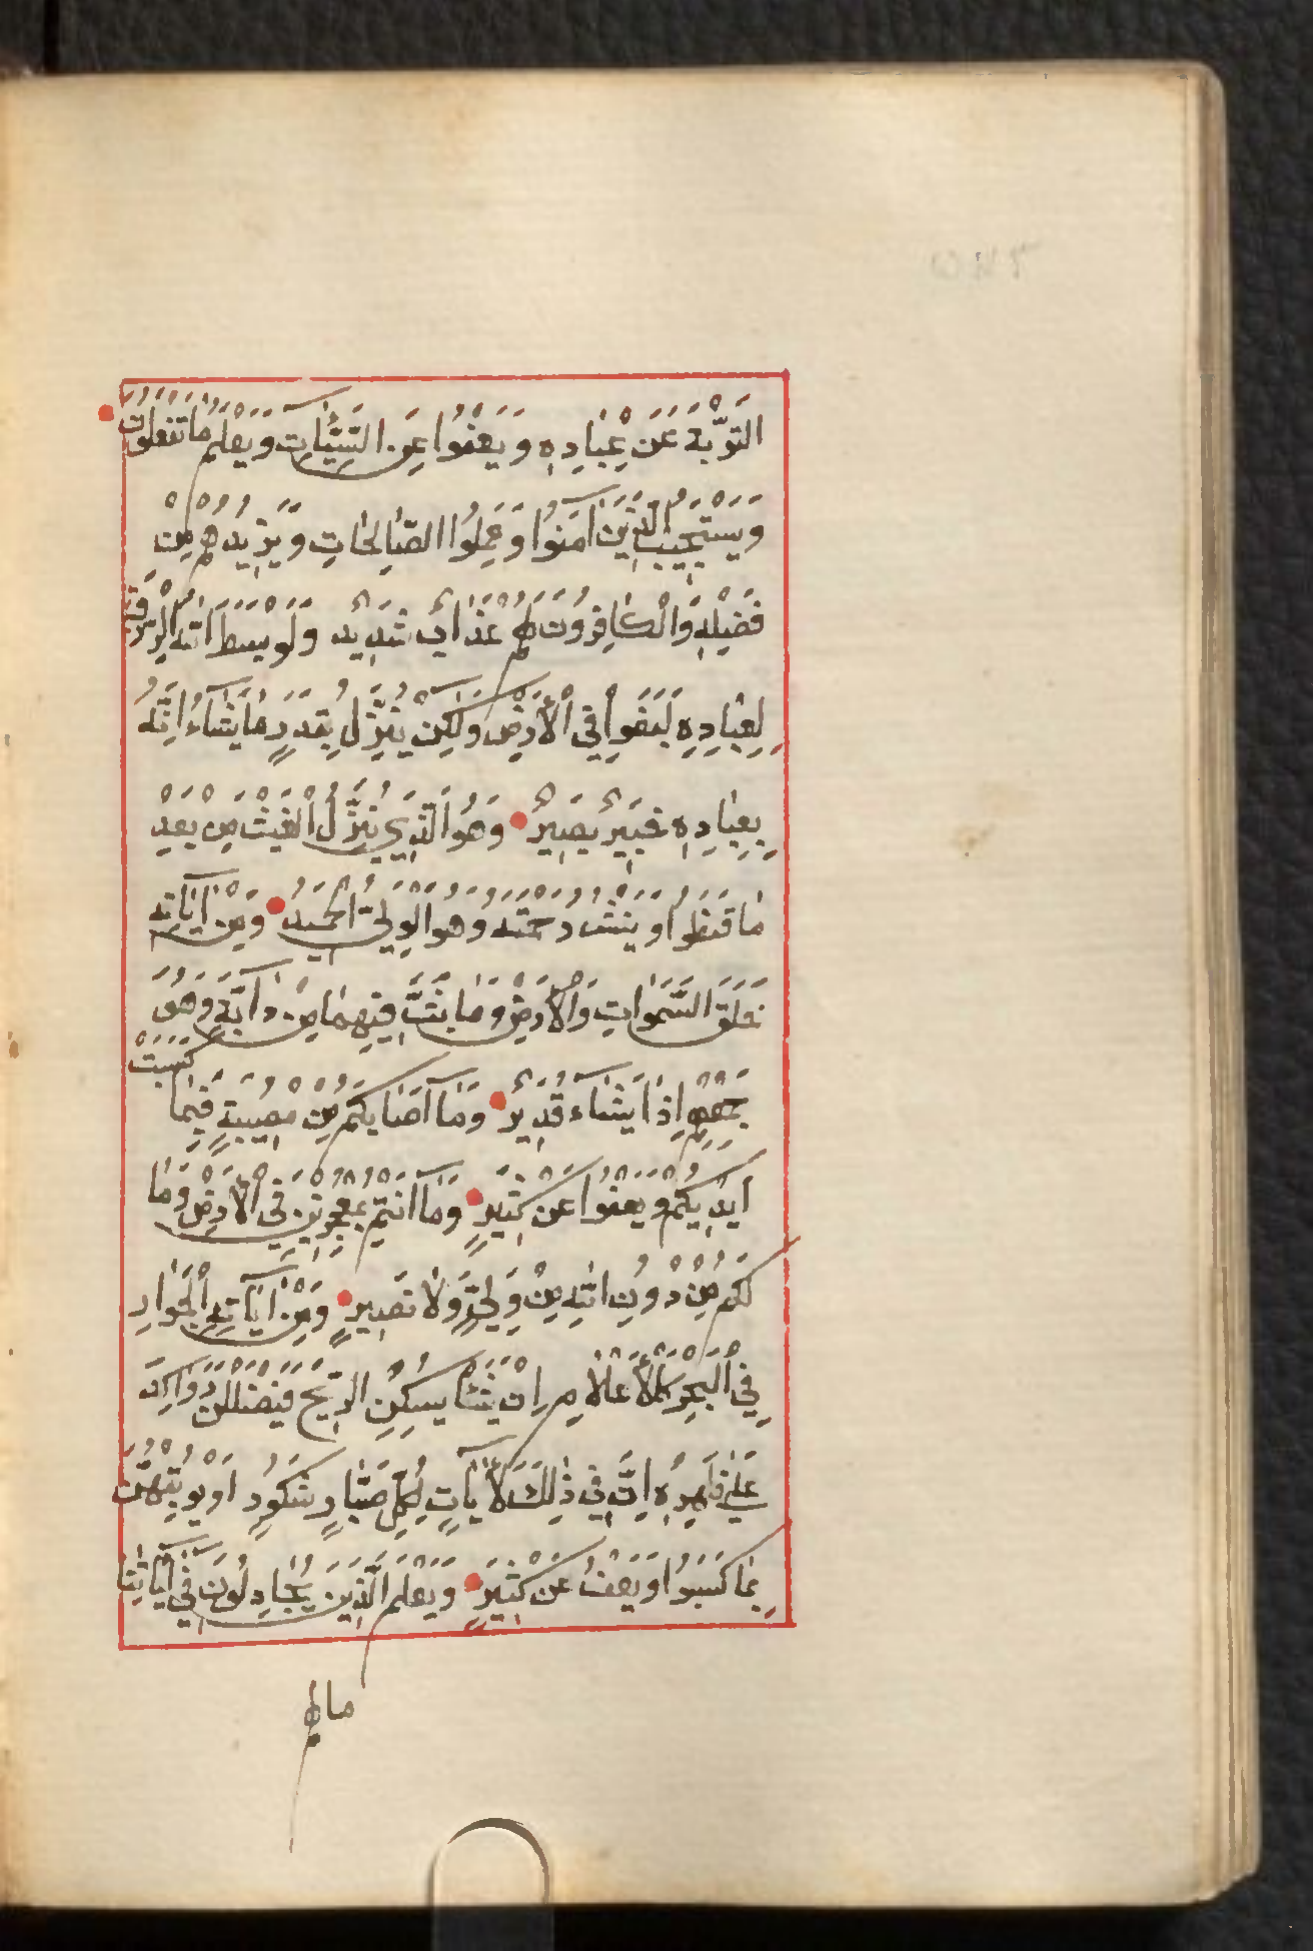 التَّوْبَةَ عَنْ عِبَادِهِ وَيَعْفُوا عَنِ السَّيِّئَاتِ وَيَعْلَمُ مَا تَفْعَلُونَ
وَيَسْتَجِيبُ الَّذِينَ آمَنُوا وَعَمِلُوا الصَّالِحَاتِ وَيَزِيدُهُمْ مِنْ
فَضْلِهِ وَالْكَافِرُونَ لَهُمْ عَذَابٌ شَدِيدٌ وَلَوْ بَسَطَ اللَّهُ الرِّزْقَ
لِعِبَادِهِ لَبَغَوْا فِي الْأَرْضِ وَلَكِنْ يُنَزِّلُ بِقَدَرٍ مَا يَشَاءُ إِنَّهُ
بِعِبَادِهِ خَبِيرٌ بَصِيرٌ وَهُوَ الَّذِي يُنَزِّلُ الْغَيْثَ مِنْ بَعْدِ
مَا قَنَطُوا وَيَنْشُرُ رَحْمَتَهُ وَهُوَ الْوَلِيُّ الْحَمِيدُ وَمِنْ آيَاتِهِ
خَلْقُ السَّمَوَاتِ وَالْأَرْضِ وَمَا بَثَّ فِيهِمَا مِنْ دَابَّةٍ وَهُوَ
جَمْعِهِمْ إِذَا يَشَاءُ قَدِيرٌ وَمَا أَصَابَكُمْ مِنْ مُصِيبَةٍ فَبِمَا كَسَبَتْ
أَيْدِيكُمْ وَيَعْفُوا عَنْ كَثِيرٍ وَمَا أَنْتُمْ بِمُعْجِزِينَ فِي الْأَرْضِ وَمَا
لَكُمْ مِنْ دُونِ اللَّهِ مِنْ وَلِيٍّ وَلَا نَصِيرٍ وَمِنْ آيَاتِهِ الْجَوَارِ
فِي الْبَحْرِ كَالْأَعْلَامِ إِنْ يَشَأْ يُسْكِنِ الرِّيحَ فَيَضْلَلْنَ رَوَاكِدَ
عَلَى ظَهْرِهِ إِنَّ فِي ذَلِكَ لَآيَاتٍ لِكُلِّ صَبَّارٍ شَكُورٍ أَوْ يُوبِقْهُنَّ
بِمَا كَسَبُوا وَيَعْفُ عَنْ كَثِيرٍ وَيَعْلَمَ الَّذِينَ يُجَادِلُونَ فِي آيَاتِنَا
مالهم